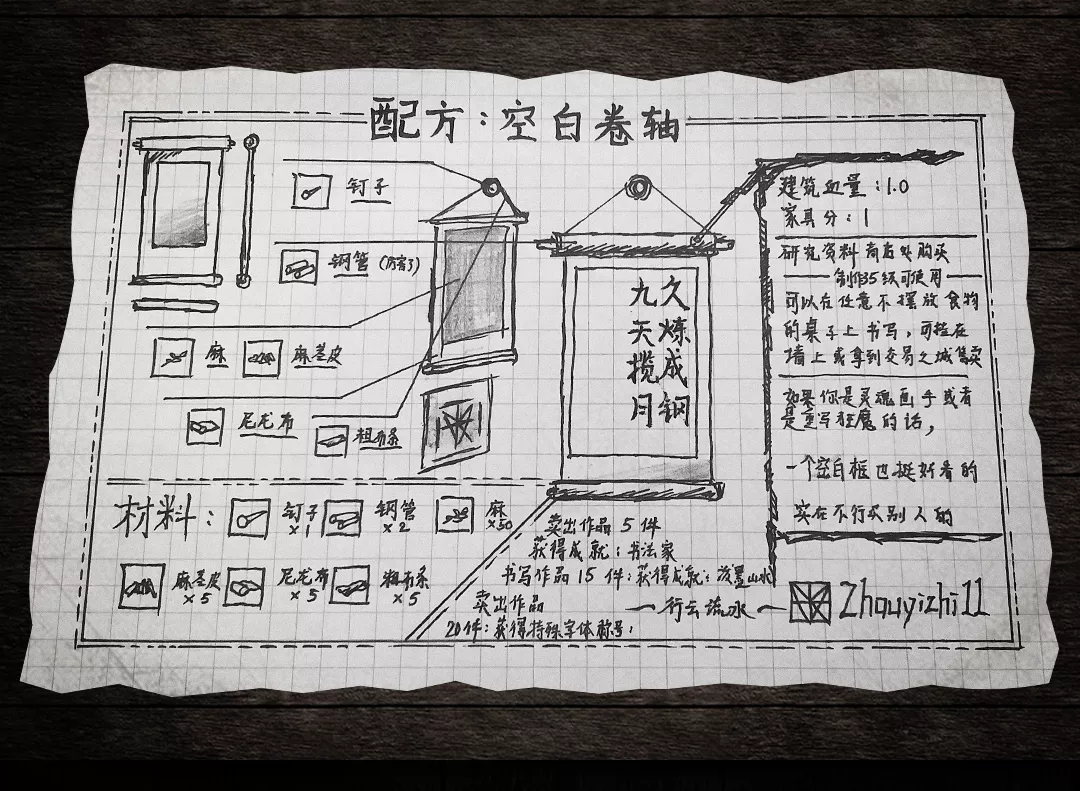 配方：空白卷轴
钉子
钢管（厉害了）
麻
麻茎皮
尼龙布
粗布条
久炼成钢
九天揽月
建筑血量：1.0
家具分：1
研究资料 商店处购买
制作35级可使用
可以在任意不摆放食物
的桌子上书写，可挂在
墙上或拿到交易之城售卖
如果你是灵魂画手或者
是重写狂魔的话，
一个空白框也挺好看的
实在不行买别人的
材料：
钉子 x1
钢管 x2
麻 x50
麻茎皮 x5
尼龙布 x5
粗布条 x5
卖出作品5件
获得成就：书法家
书写作品15件：获得成就：泼墨山水
卖出作品
20件：获得特殊字体称号：
一行云流水一
Zhouyizhi11